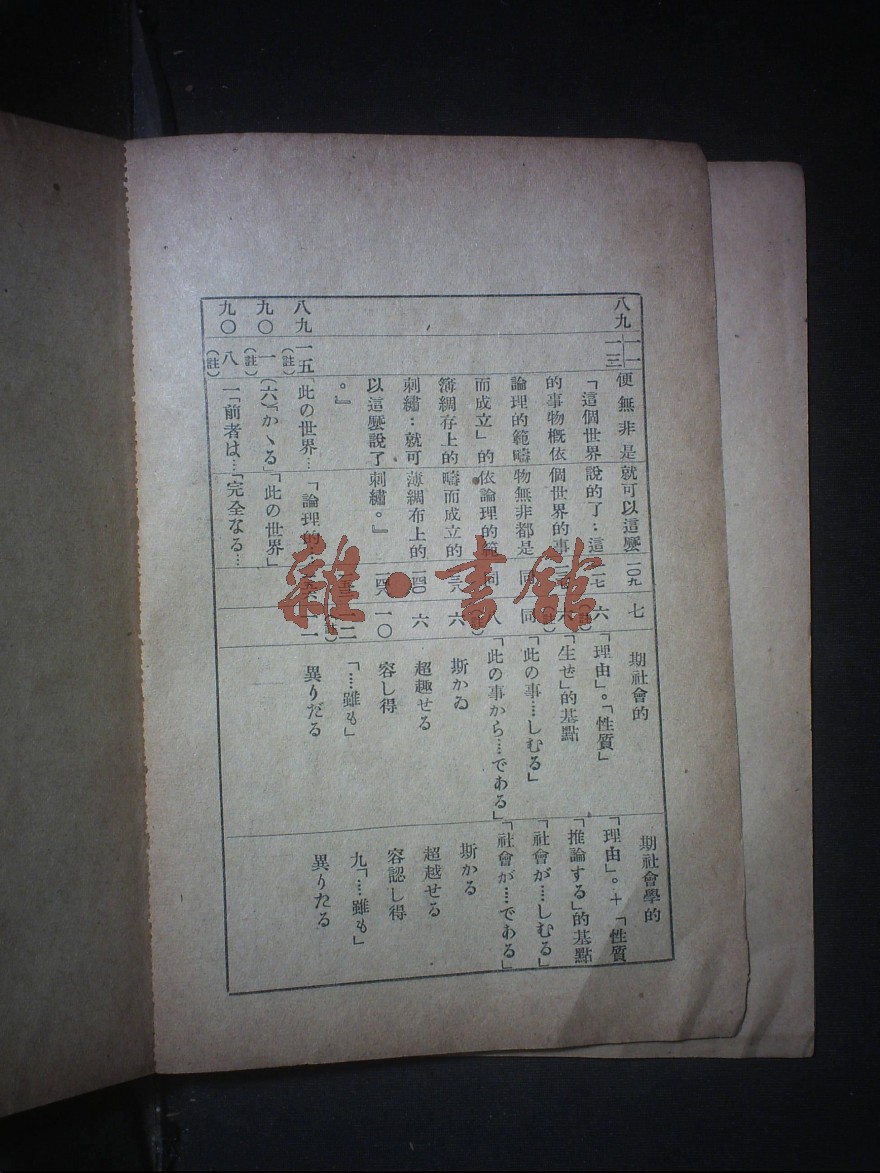 八九 一一 一三 便無非是 就可以這麼 一〇九 七 期社會的 期社會學的
「這個世界 說的了：這 六 「理由」。「性質」 「理由」。十「性質
的事物概依 個世界的事 「生せ」的基點 「推論する」的基點
論理的範疇 物無非都是 同 同 「此の事…しむる」 「社會が…しむる」
而成立」的 依論理的範 同 八 「此の事から…である」 「社會が…である」
簿綢存上的 疇而成立的 六 斯かゐ 斯かる
刺繡：就可 薄綢布上的 一四〇 六 超趣せる 超越せる
以這麼說了 刺繡。』 一〇 容し得 容認し得
。』 「…雖も」 九「…雖も」
八九 一五 (註) 「此の世界… 「論理的… 異りだる 異りたる
九〇 一 (註) (六)「かゝる」 「此の世界」
九〇 八 (註) 一「前者は… 「完全なる…
雜·書館